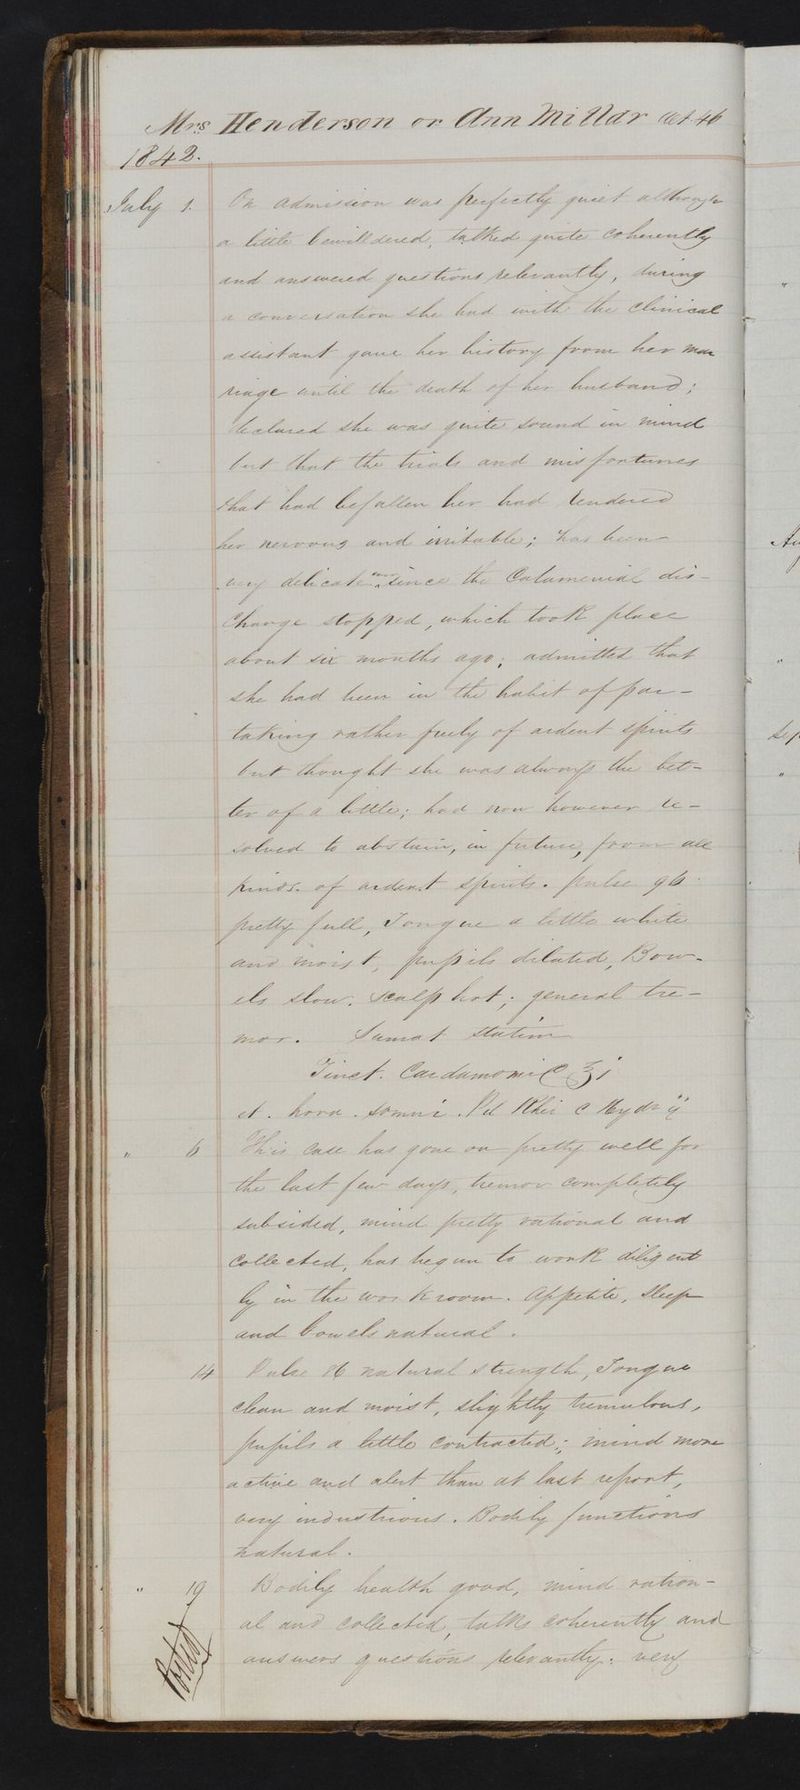 Mrs Henderson or Ann Millar aet 46
1842.
July 1. On admission was perfectly quiet although
a little bewildered, talked quite coherently
and answered questions relevantly, during
a conversation she had with the clinical
assistant gave her history from her mar
riage until the death of her husband;
declared she was quite sound in mind
but that the trials and misfortunes
that had befallen her had rendered
her nervous and irritable; has been
very delicate ever since the Catamenial dis-
charge stopped, which took place
about six months ago; admitted that
she had been in the habit of par-
taking rather freely of ardent spirits
but thought she was always the bet-
ter of a little; had now however re-
solved to abstain, in future, from all
kinds of ardent spirits. pulse 96
pretty full, Tongue a little white
and moist, pupils dilated, Bow-
els slow. scalp hot; general tre-
mor. Sumat statim
Tinct. Cardamomi C ʒi
et. hora. somni. Pil Rhei c Hydr ij
" 6 This case has gone on pretty well for
the last few days, tremor completely
subsided, mind pretty rational and
collected, has begun to work diligent
ly in the workroom. Appetite, sleep
and bowels natural.
14 Pulse 86 natural strength, Tongue
clean and moist, slightly tremulous,
pupils a little contracted; mind more
active and alert than at last report,
very industrious. Bodily functions
natural.
" 19 Bodily health good, mind ration-
al and collected, talks coherently and
answers questions relevantly. very
Posted